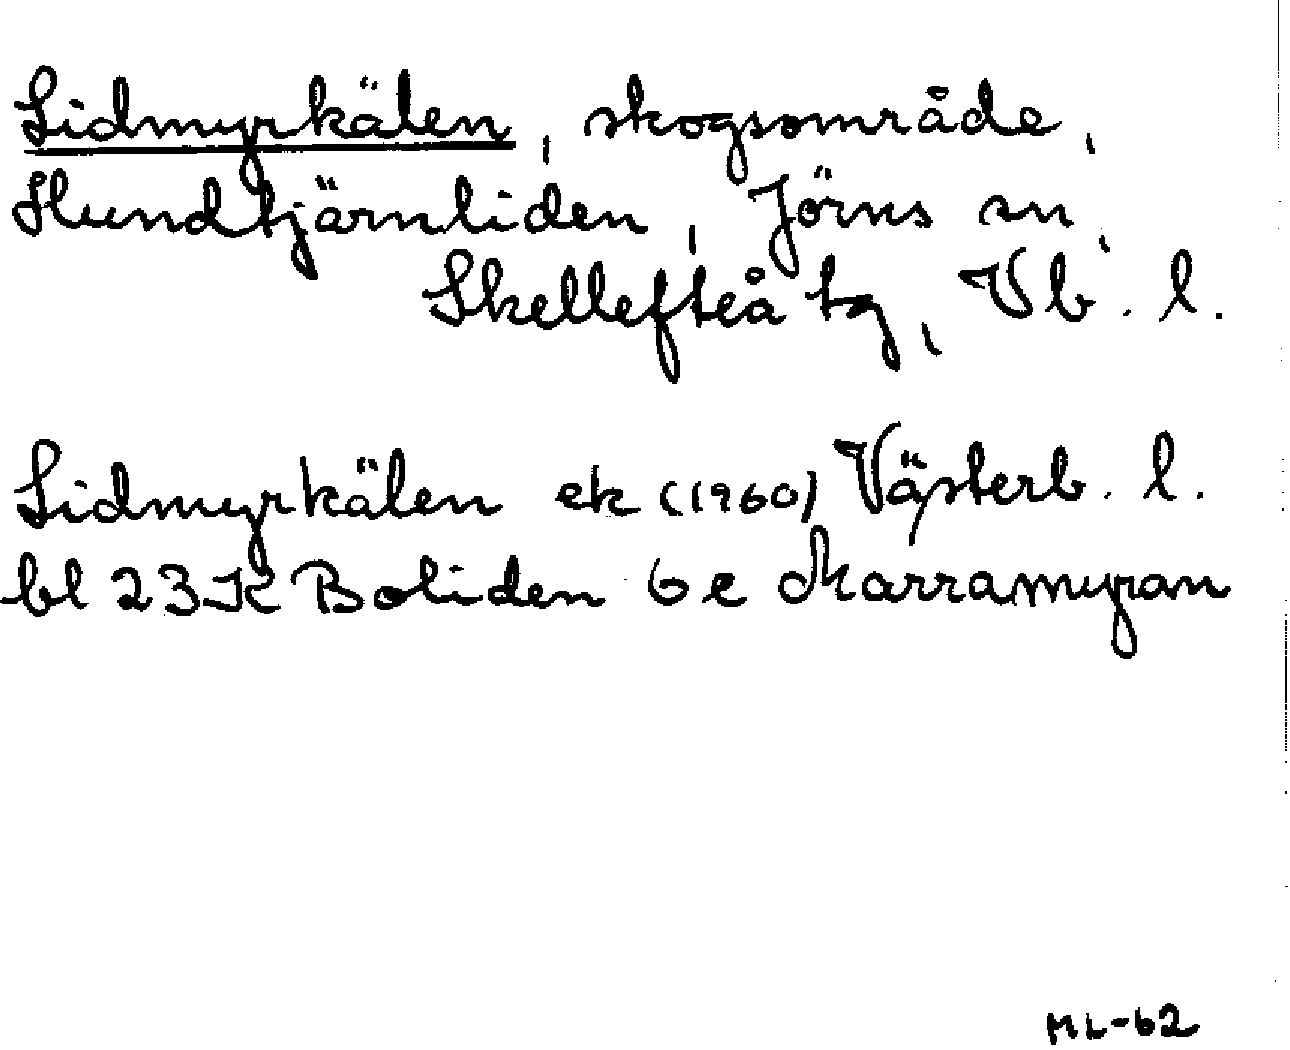 Sidmyrkälen, skogsområde,
Hundtjärnliden, Jörns sn,
Skellefteå tg, Vb. l.
Sidmyrkälen ek (1960) Västerb. l.
bl 23K Boliden 6e Marramyran
ML-62